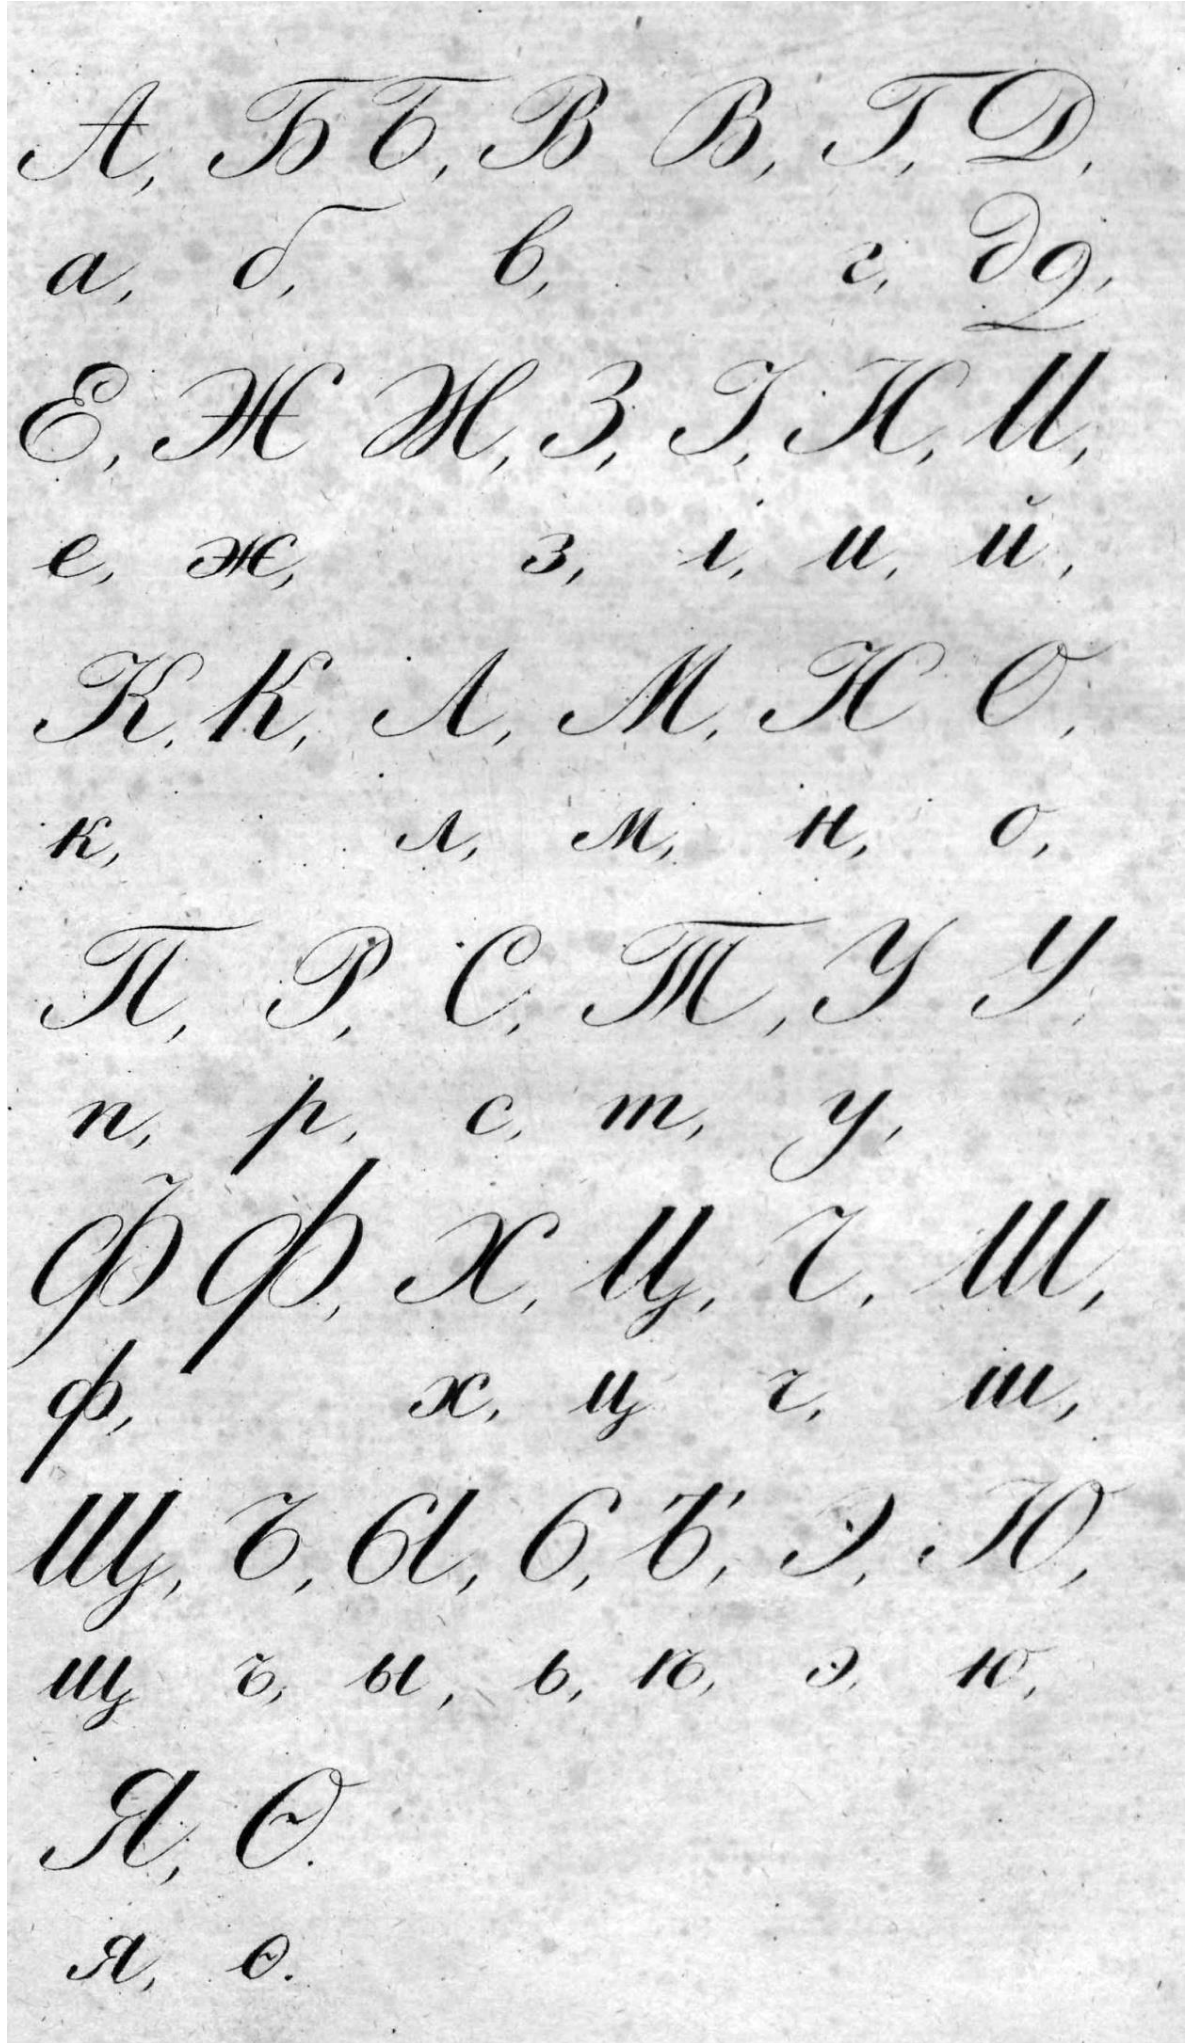 А, Б Б, В В, Г, Д,
а, б, в, г, д д,
Е, Ж Ж, З, І, И, И,
е, ж, з, і, и, й,
К, К, Л, М, Н О,
к, л, м, н, о,
П, Р, С, Т, У У,
п, р, с, т, у,
Ф Ф, Х, Ц, Ч, Ш,
ф, х, ц ч, ш,
Щ, Ъ, Ы, Ь, Ѣ, Э, Ю,
щ ъ, ы, ь, ѣ, э, ю,
Я, Ѳ.
я, ѳ.